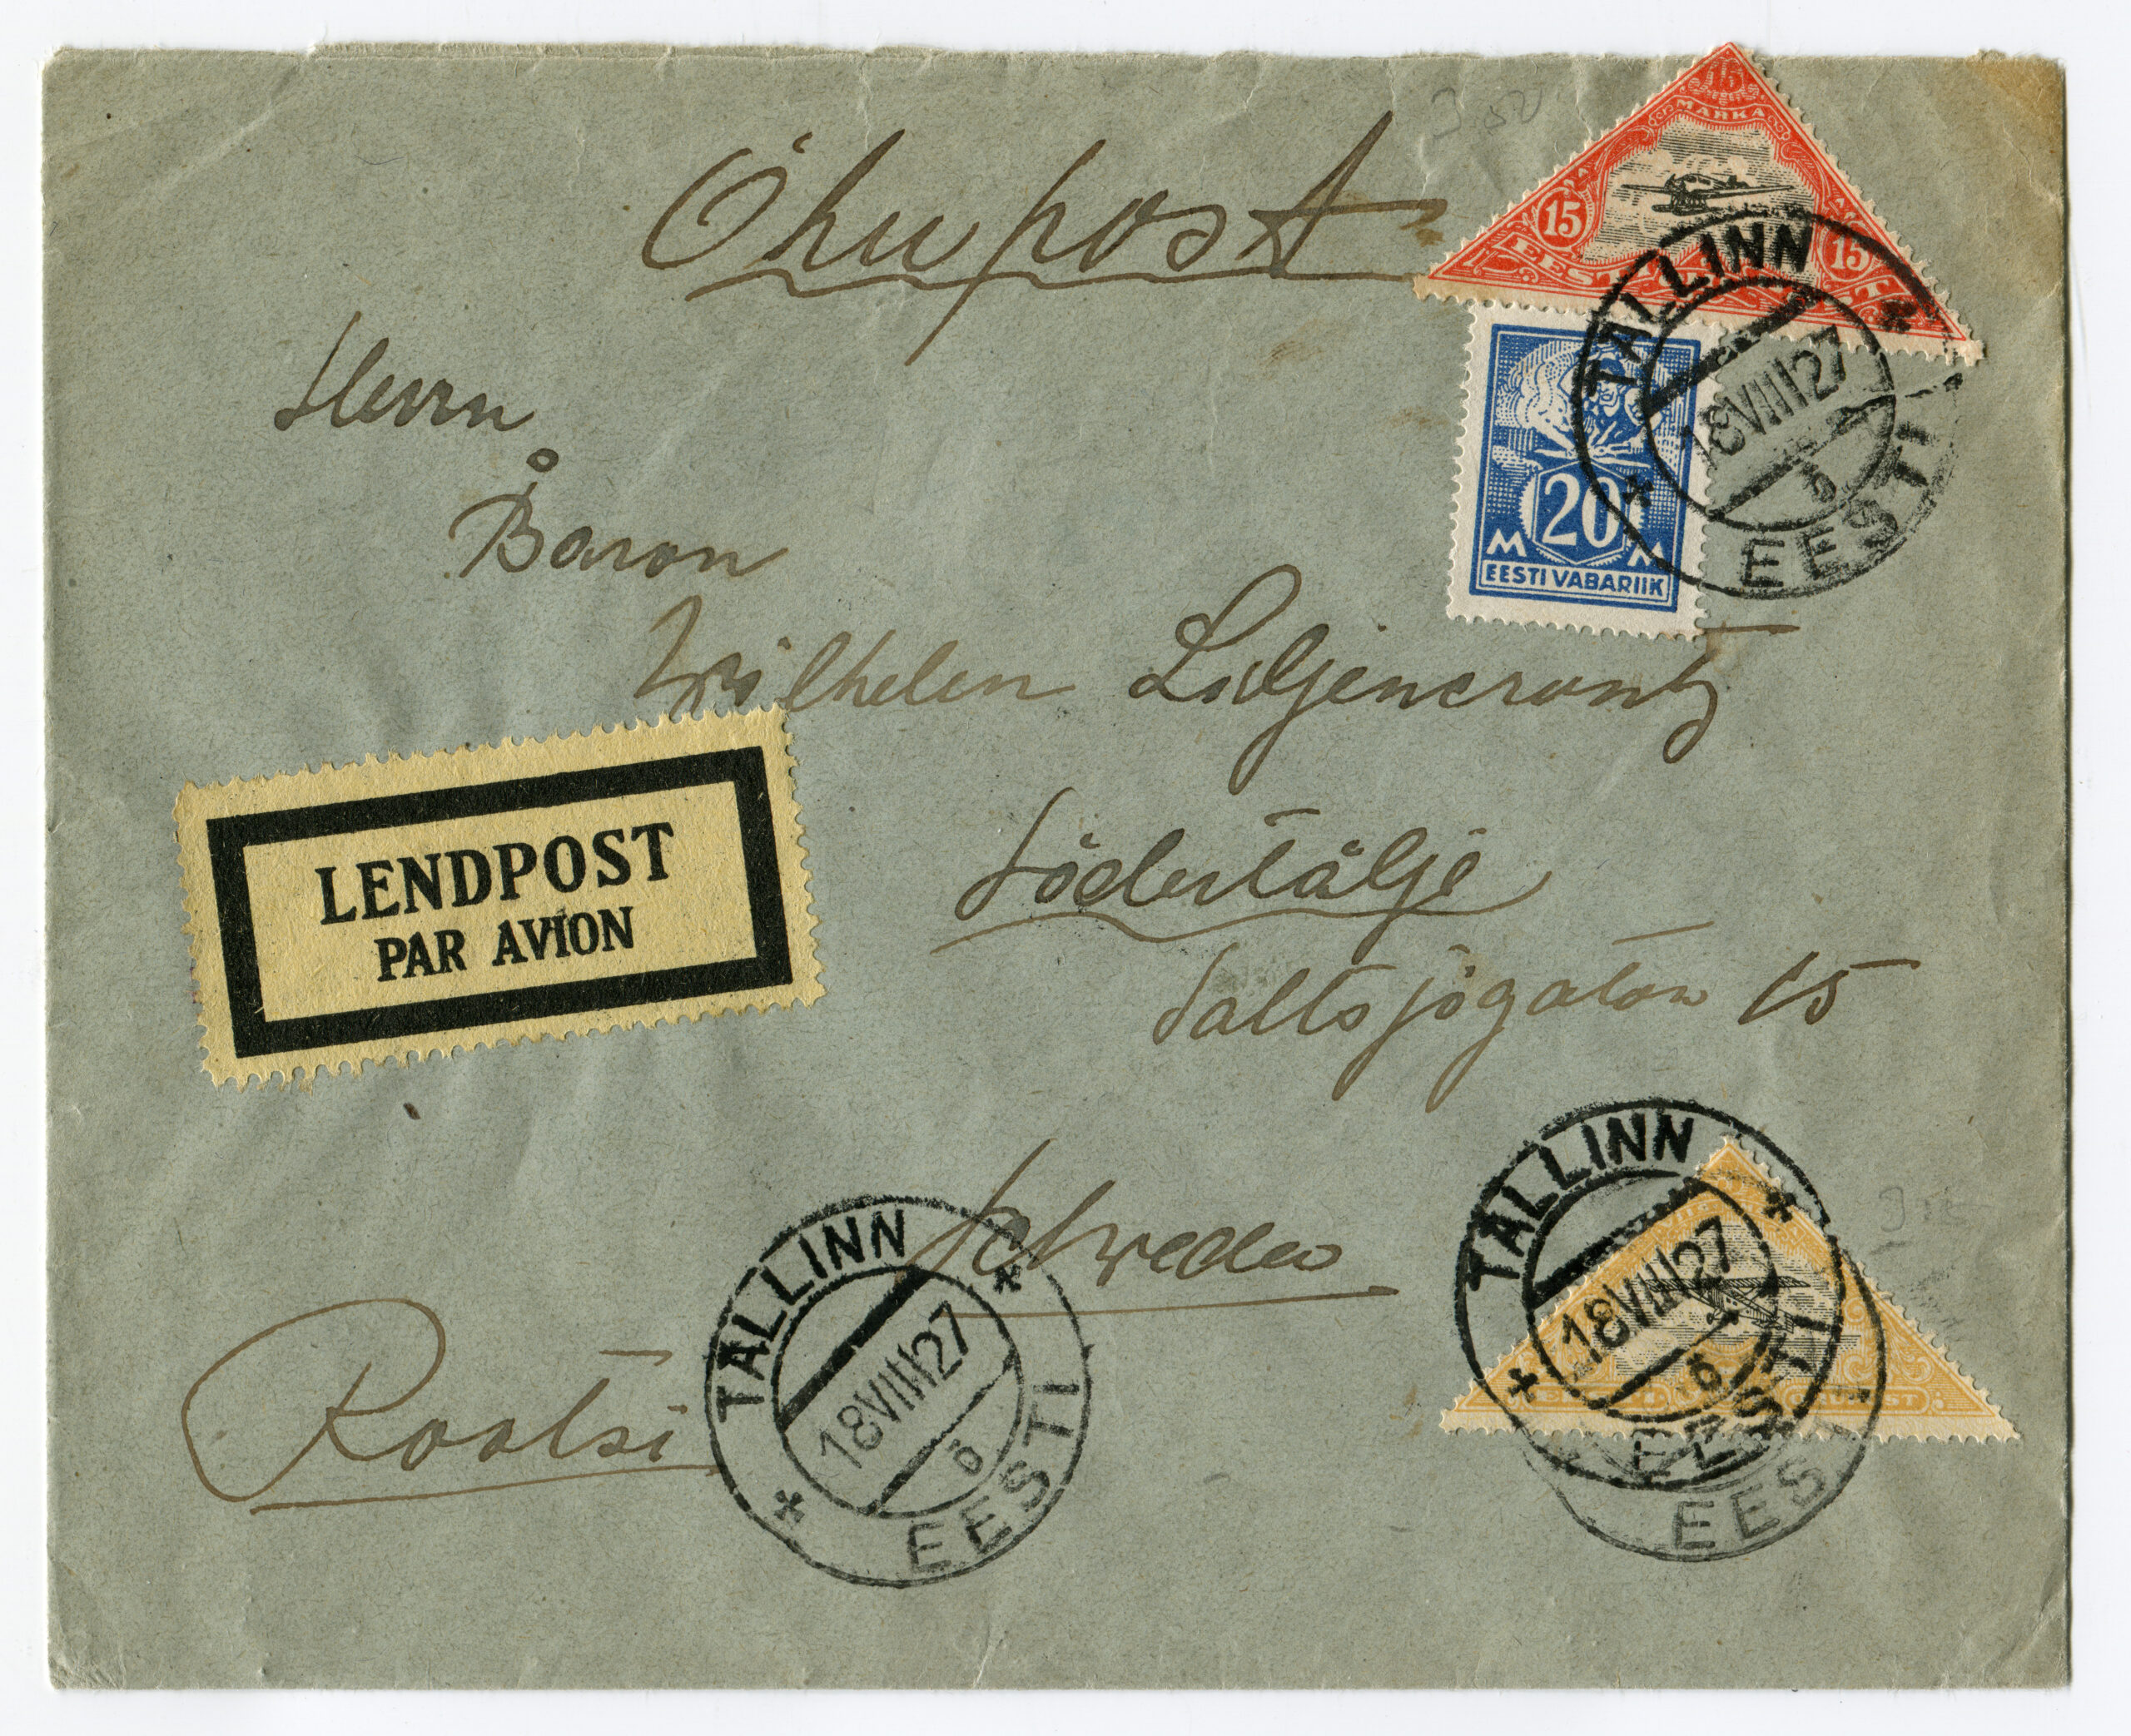 Õhupost
15
MARKA
15 15
EESTI
TALLINN
18 VIII 27
EESTI
20
M M
EESTI VABARIIK
Herrn
Baron
Wilhelm Liljencrantz
LENDPOST
PAR AVION
Södertälje
Saltsjögatan 15
Schweden
Rootsi
TALLINN
18 VIII 27
EESTI
TALLINN
18 VIII 27
EESTI
EESTI